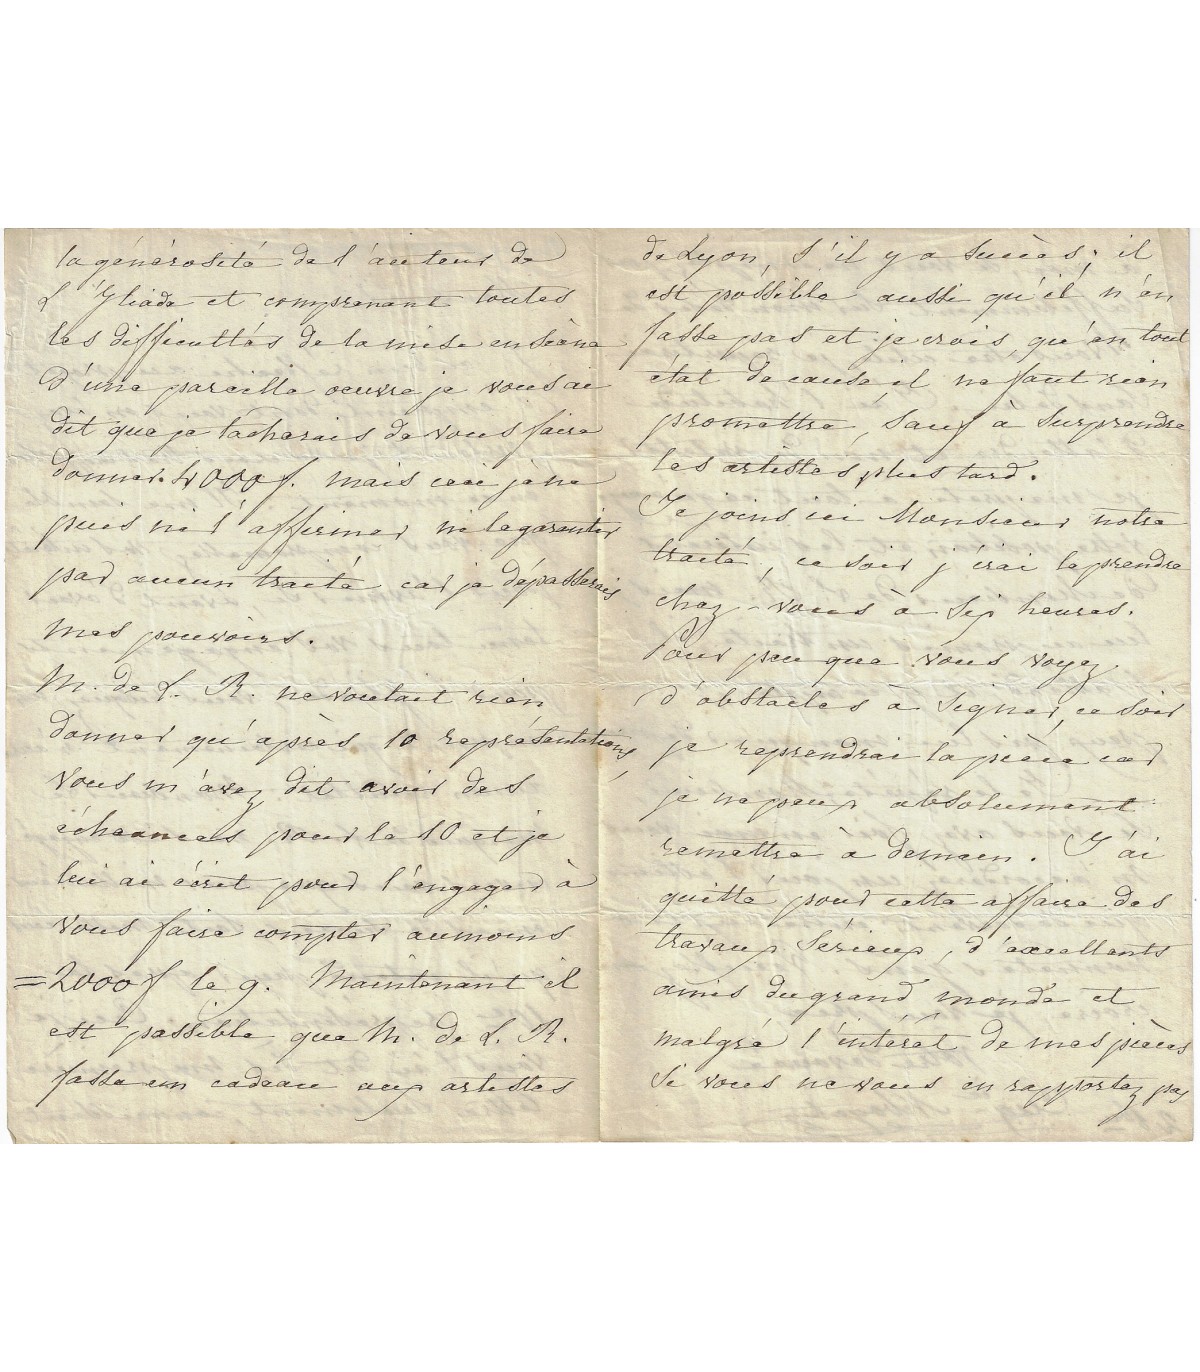 la générosité de l'auteur de
L'Yliade et comprenant toutes
les difficultés de la mise en scène
d'une pareille oeuvre je vous ai
dit que je tacherais de vous faire
donner 4000 f. mais ceci je ne
puis ni l'affirmer ni le garantir
par aucun traité car je dépasserais
mes pouvoirs.
M. de L. R. ne voulait rien
donner qu'après 10 représentations,
vous m'avez dit avoir des
échéances pour le 10 et je
lui ai écrit pour l'engager à
vous faire compter au moins
=2000 f le 9. Maintenant il
est possible que M. de L. R.
fasse un cadeau aux artistes
de Lyon, s'il y a succès; il
est possible aussi qu'il n'en
fasse pas et je crois, qu'en tout
état de cause, il ne faut rien
promettre, sauf à surprendre
les artistes plus tard.
Je joins ici Monsieur notre
traité, ce soir j'irai le prendre
chez-vous à six heures.
Pour peu que vous voyez
d'obstacles à signer, ce soir
je reprendrai la pièce car
je ne peux absolument
remettre à demain. J'ai
quitté pour cette affaire des
travaux sérieux, d'excellents
amis du grand monde et
malgré l'intérêt de mes pièces
si vous ne vous en rapportez pas